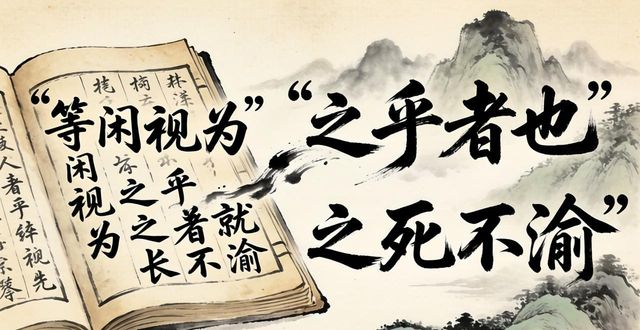 “等闲视为”
“之乎者也”
之死不渝”
闲视为
之之长
乎着不
就渝
人者乎
视先